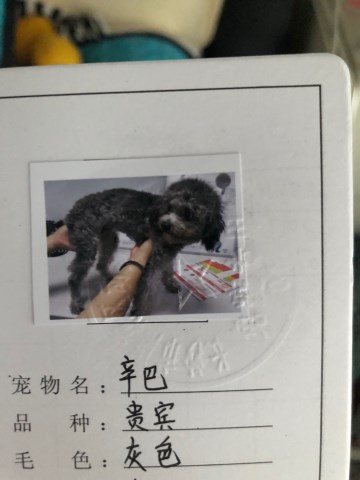 宠物名：辛巴
品种：贵宾
毛色：灰色